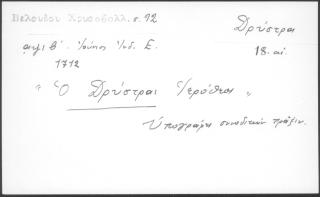 Βελουδου Χρυσοβουλλ. σ. 92
Δρύστρα
18. αἰ.
αψιβ΄. Ἰούνιος Ἰνδ. Ε.
1712
" Ὁ Δρύστρας Ἱερόθεος "
Ὑπογράφει συνοδικὴν πρᾶξιν.